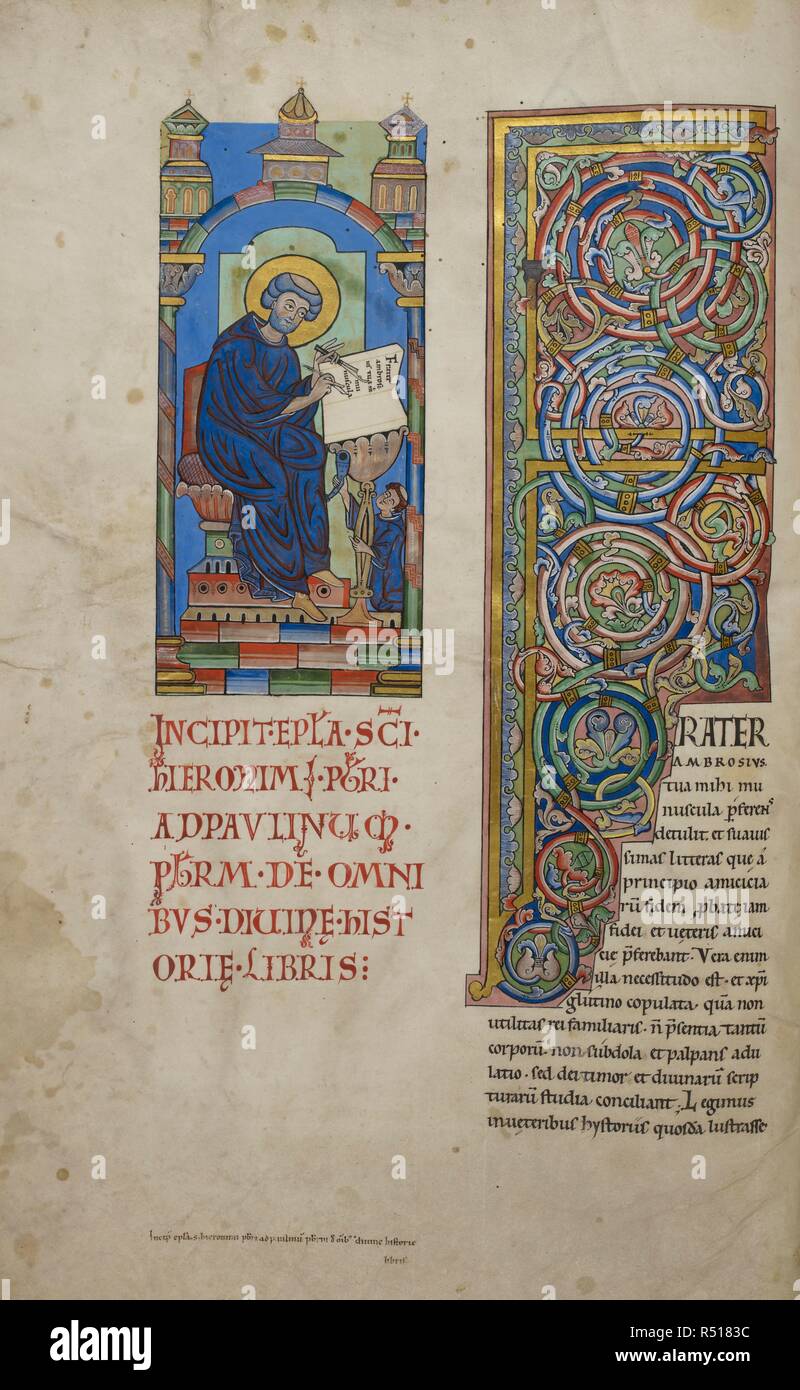 Frater
ambrosi
us tua m
ihi mu
nuscula
INCIPIT·EPLA·SCI·
HIERONIMI·PBRI·
ADPAVLINUM·
PBRM·DE·OMNI
BVS·DIVINĘ·HIST
ORIĘ·LIBRIS:
RATER
AMBROSIVS
tua mihi mu
nuscula p̄ferens
detulit· et suauis
simas litteras· que a
principio amicicia
rū fidem· p̱batę iam
fidei et ueteris amici
cie p̄ferebant· Vera enim
illa necessitudo est· et xp̄i
glutino copulata· quā non
utilitas rei familiaris· n̄ p̄sentia tantū
corporū· non subdola et palpans adu
latio· sed dei timor· et diuinarū scrip
turarū studia conciliant· Legimus
inueteribus hystoriis quosdā lustrasse
Incip̄ epl̄a·s·hieronimi pbr̄i ad paulinū pbr̄m d̄ om̄ib᷒ diuine historie
libris·
alamy
Image ID: R5183C
www.alamy.com